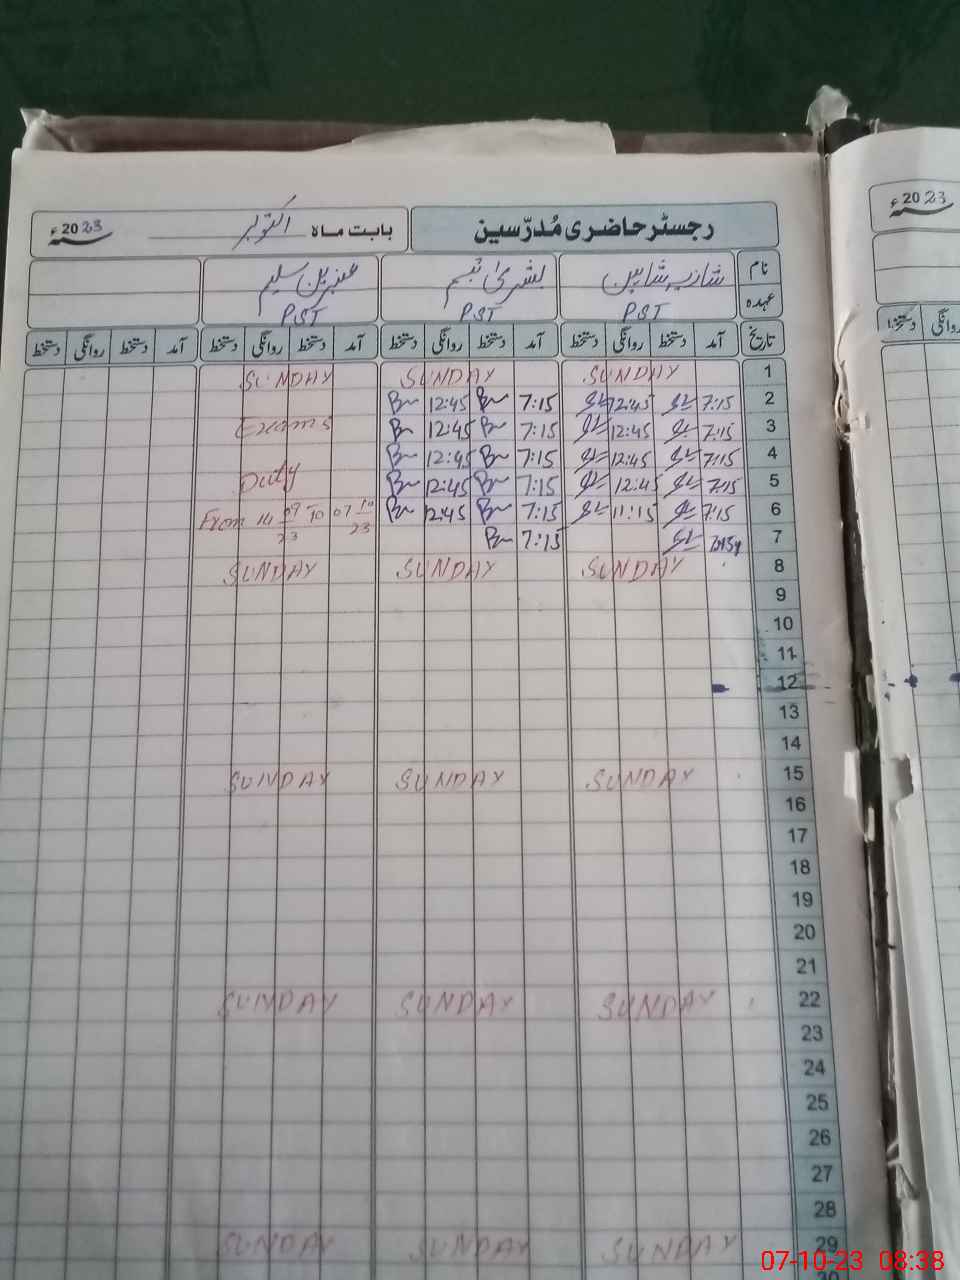 رجسٹر حاضری مُدرّسین
بابت ماہ اکتوبر 2023ء
2023ء
نام شازیہ شاہین بشریٰ تبسم عنبرین سلیم
عہدہ PST PST PST
تاریخ آمد دستخط روانگی دستخط آمد دستخط روانگی دستخط آمد دستخط روانگی دستخط آمد دستخط روانگی دستخط
روانگی دستخط
1 SUNDAY SUNDAY SUNDAY
2 7:15 12:45 7:15 12:45
3 7:15 12:45 7:15 12:45 Exams
4 7:15 12:45 7:15 12:45
5 7:15 12:45 7:15 12:45 Duty
6 7:15 11:15 7:15 12:45 From 14 09/23 To 07 10/23
7 7:15
8 SUNDAY SUNDAY SUNDAY
9
10
11
12
13
14
15 SUNDAY SUNDAY SUNDAY
16
17
18
19
20
21
22 SUNDAY SUNDAY SUNDAY
23
24
25
26
27
28
29 SUNDAY SUNDAY SUNDAY
07-10-23 08:38